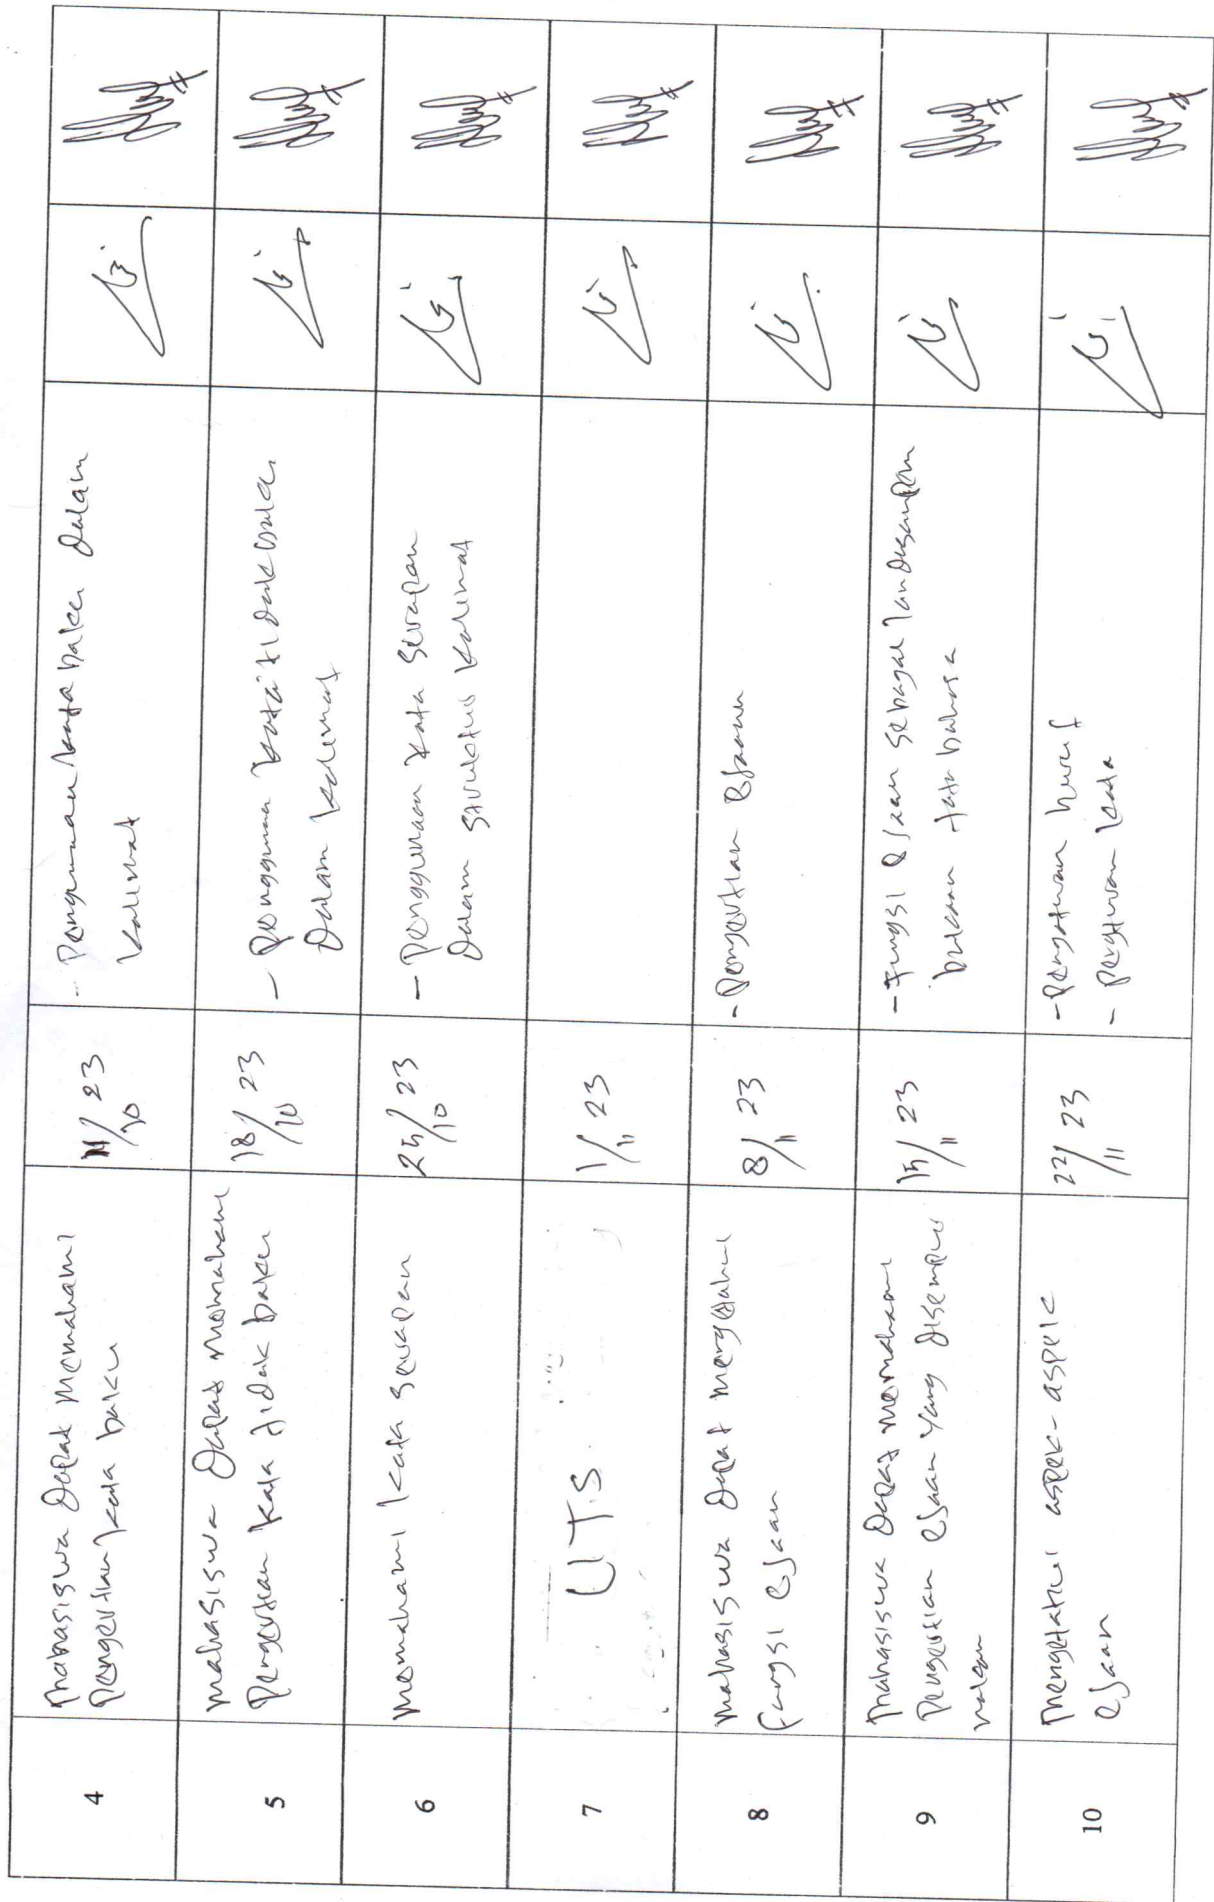 4
Mahasiswa Dapat Memahami
Pengertian kata baku
11/10 23
- Pengunaan kata baku dalam
kalimat
5
Mahasiswa Dapat Memahami
Pengertian kata tidak baku
18/10 23
- Pengguna kata tidak baku
Dalam kalimat
6
Memahami kata serapan
25/10 23
- Penggunaan kata serapan
Dalam struktur kalimat
7
UTS
1/11 23
8
Mahasiswa Dapat mengetahui
fungsi ejaan
8/11 23
- Pengertian Ejaan
9
Mahasiswa Dapat memahami
Pengertian ejaan Yang disempur
nakan
15/11 23
- Fungsi Ejaan sebagai landasan
bukaan tata bahasa
10
Mengetahui aspek-aspek
ejaan
22/11 23
- Pengaturan huruf
- Pengaturan kata